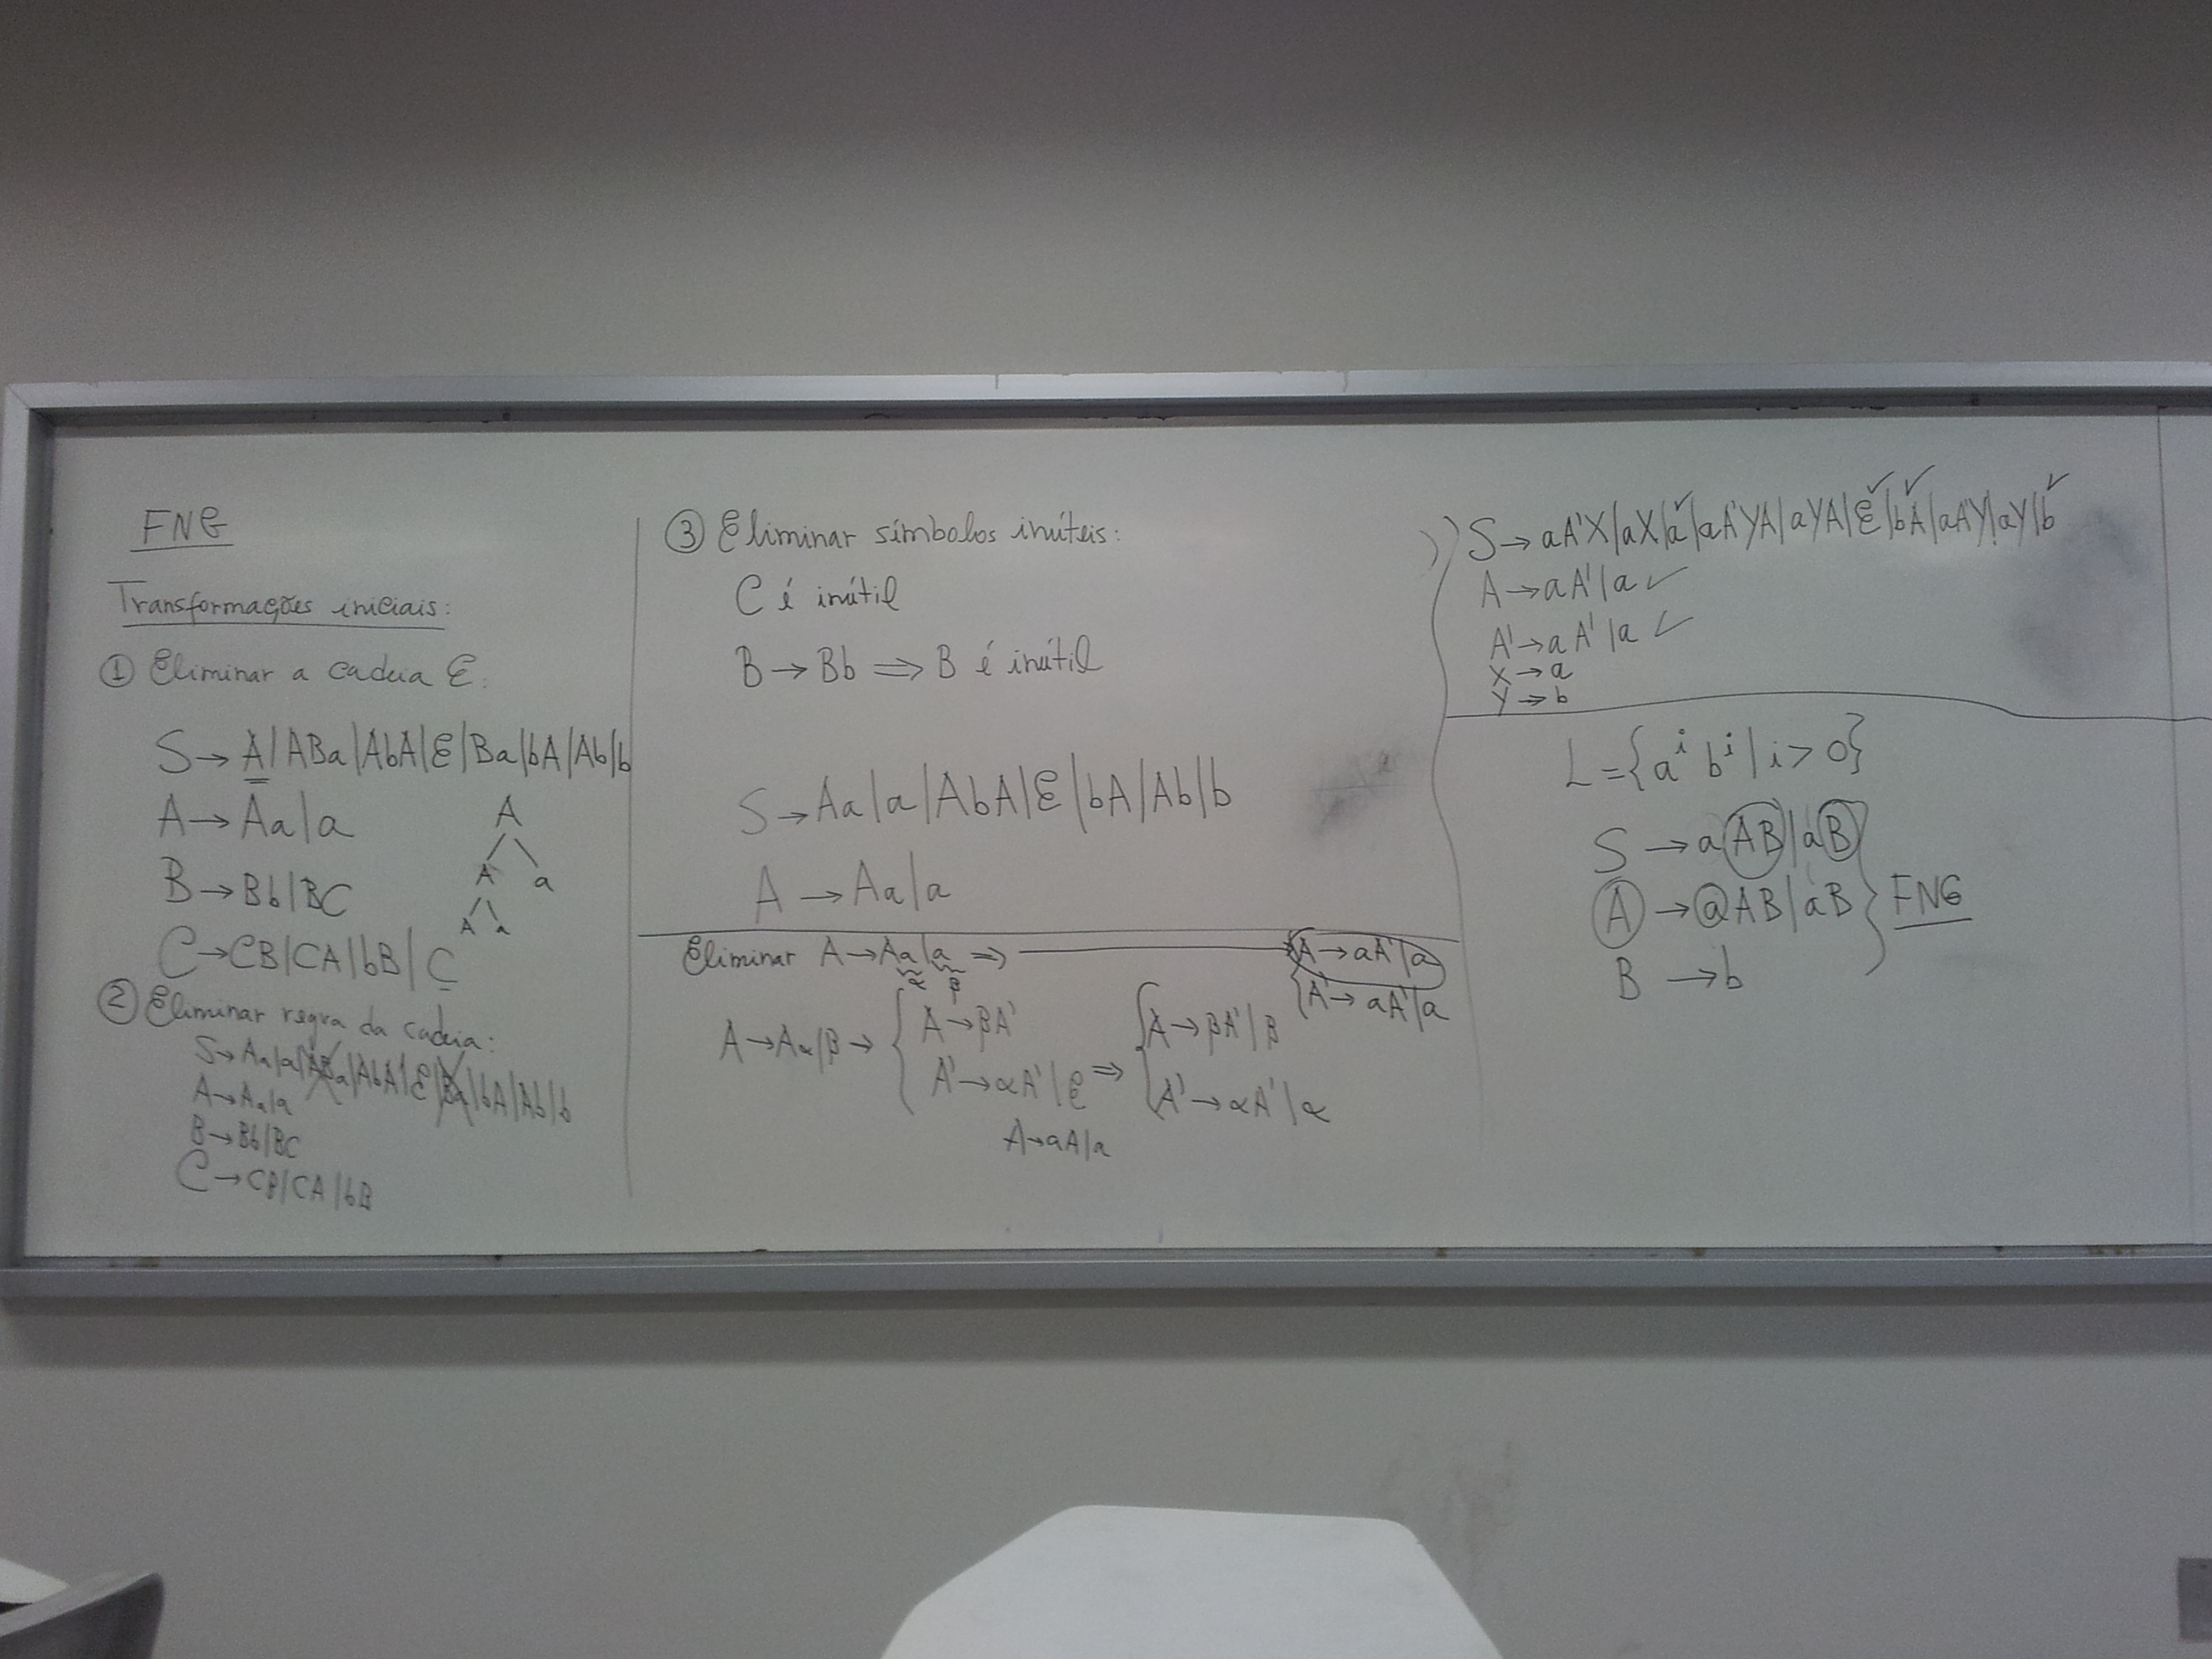 FNG
Transformações iniciais:
① Eliminar a cadeia ε:
S → A | ABa | AbA | ε | Ba | bA | Ab | b
A → Aa | a
B → Bb | BC
C → CB | CA | bB | C
A
A a
A a
② Eliminar regra da cadeia:
S → Aa | a | ABa | AbA | ε | Ba | bA | Ab | b
A → Aa | a
B → Bb | BC
C → CB | CA | bB
③ Eliminar símbolos inúteis:
C é inútil
B → Bb ⇒ B é inútil
S → Aa | a | AbA | ε | bA | Ab | b
A → Aa | a
Eliminar A → Aa | a ⇒ A → aA' | a
α β
A' → aA' | a
A → Aα | β → { A → βA' ⇒ { A → βA' | β
A' → αA' | ε A' → αA' | α
A → aA | a
S → aA'X | aX | a ✓ | aA'YA | aYA | ε ✓ | bA ✓ | aA'Y | aY | b ✓
A → aA' | a ✓
A' → aA' | a ✓
X → a
Y → b
L = {aⁱ bⁱ | i > 0}
S → aAB | aB
A → aAB | aB } FNG
B → b